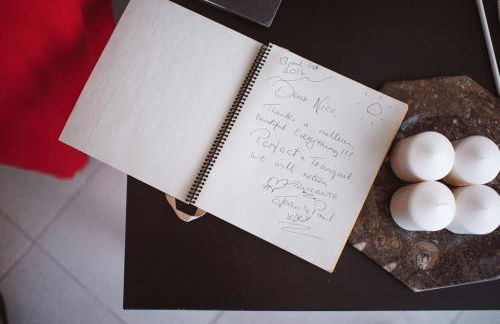 April 1st
2016
Dear Nico
Thanks a million,
beautiful Everything!!!
Perfect & Tranquil.
We will return
xxx